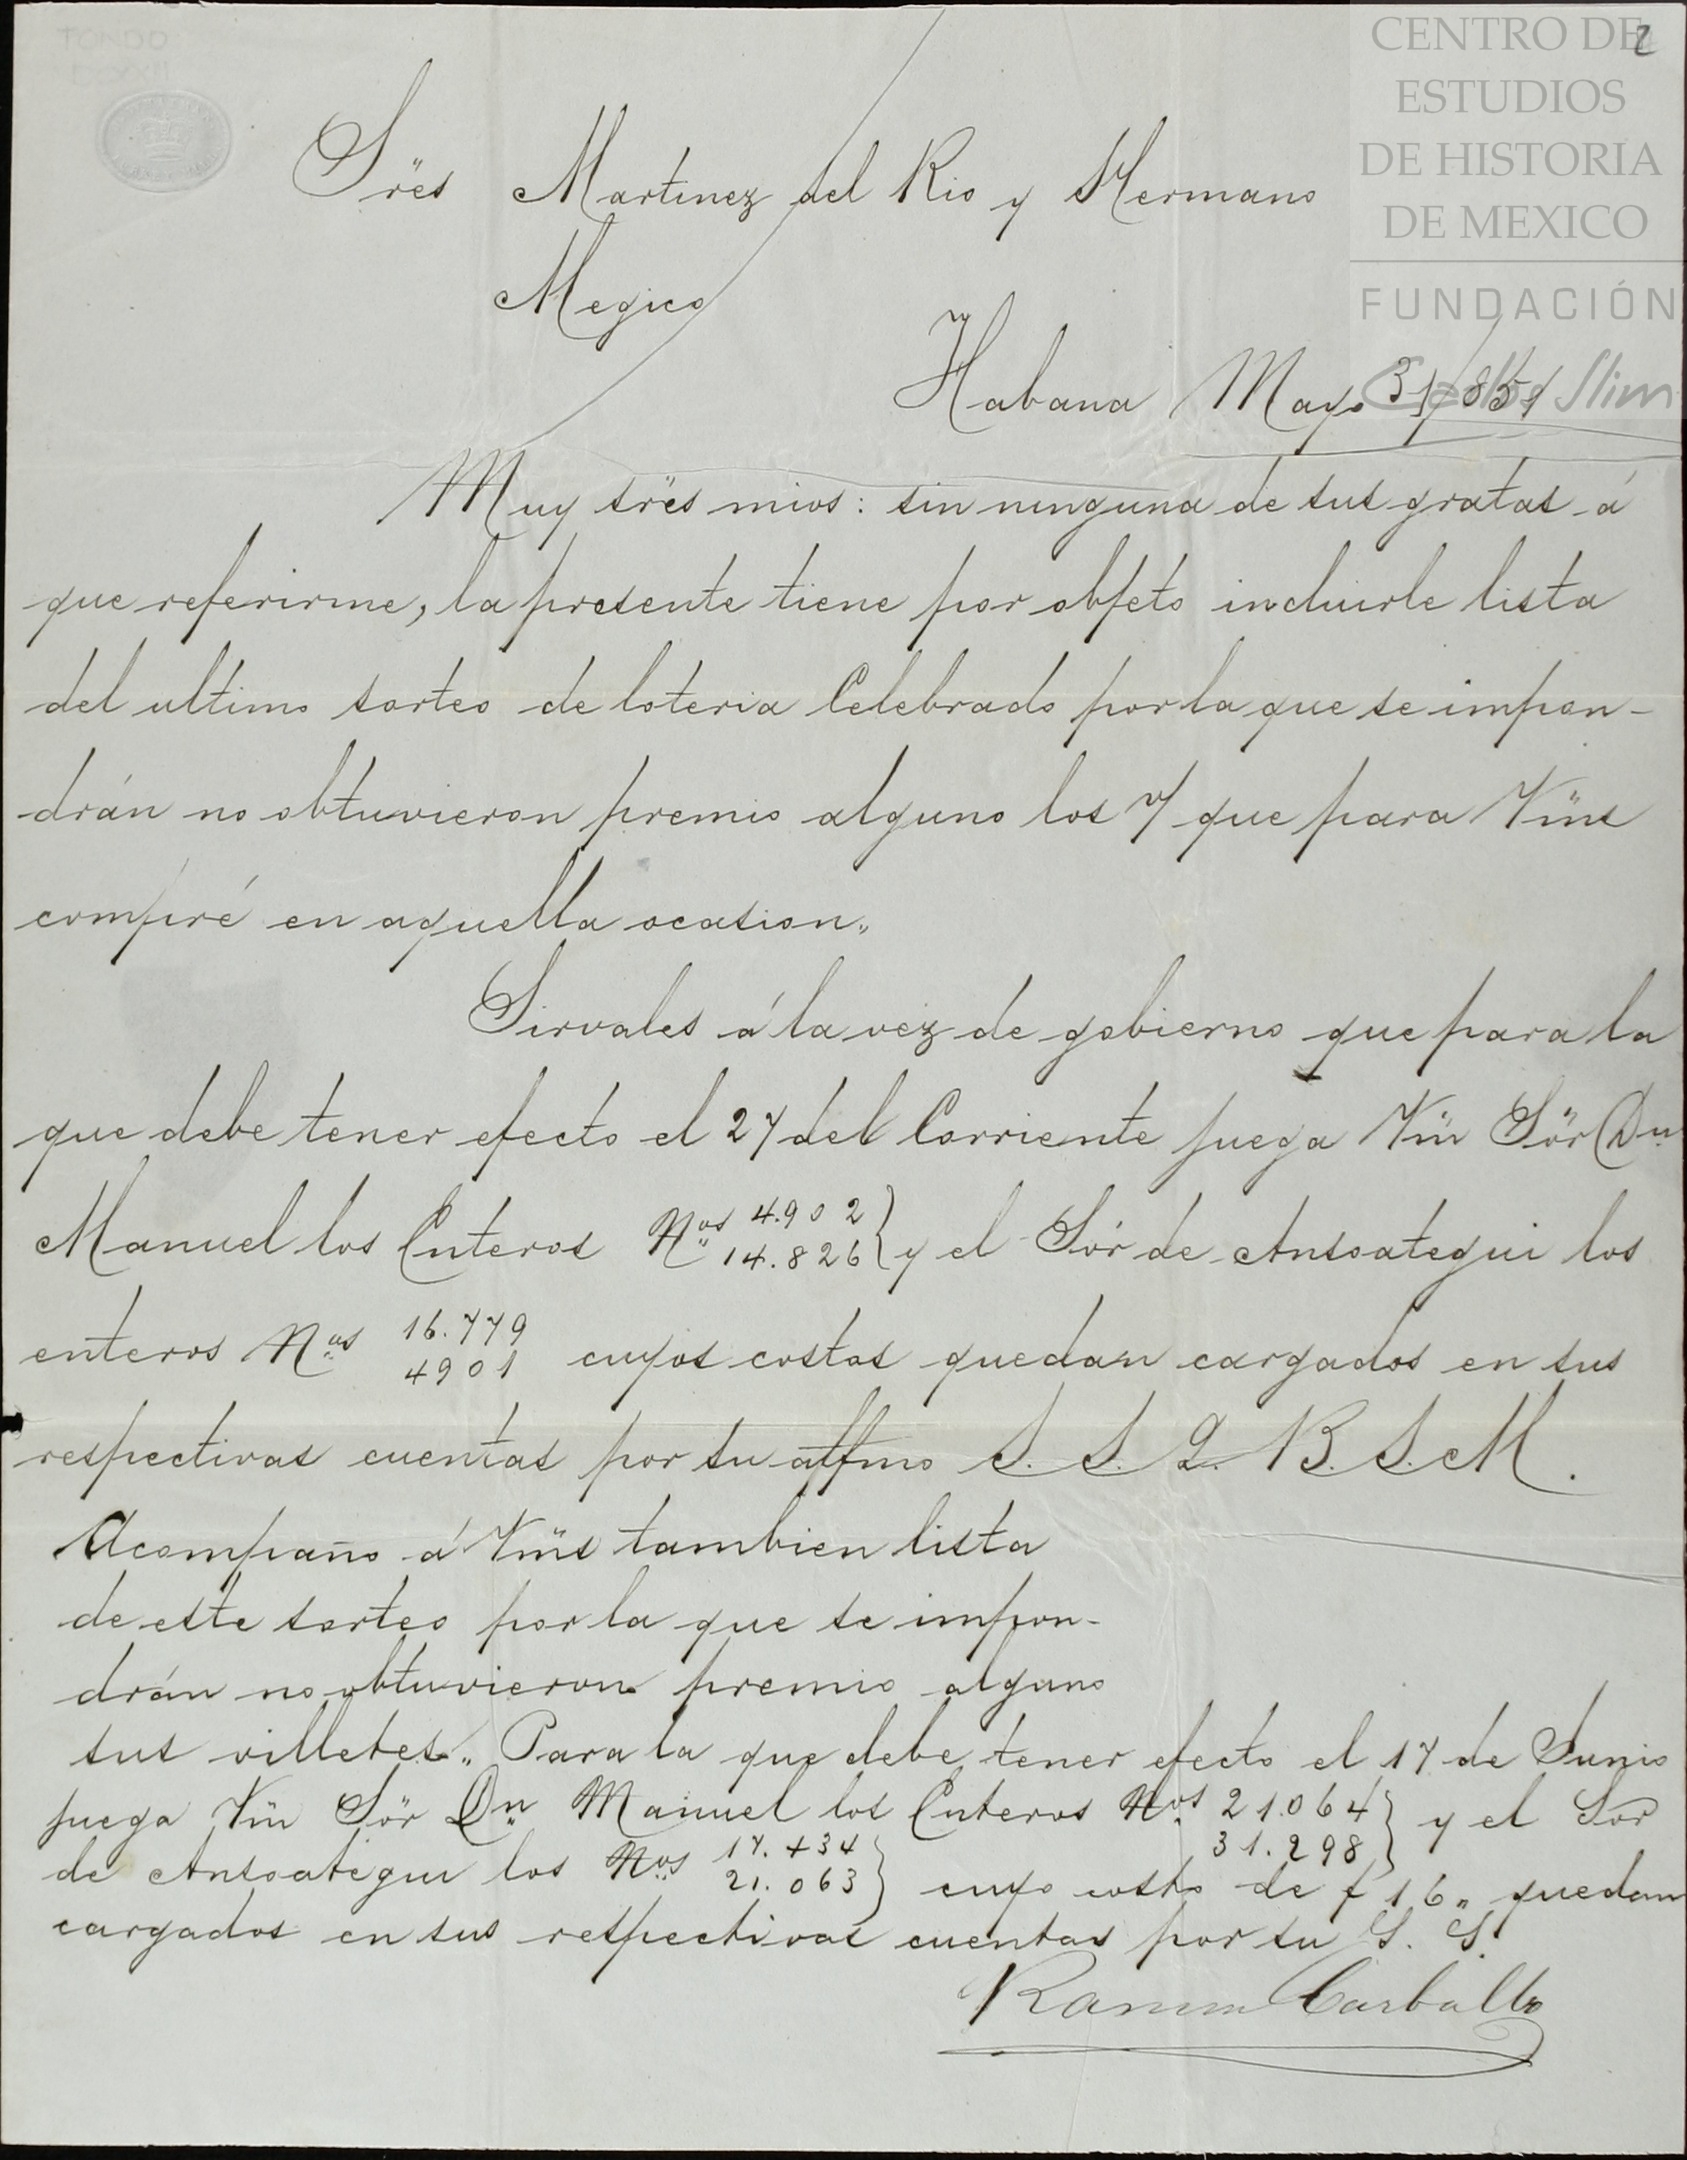 CENTRO DE
ESTUDIOS
DE HISTORIA
DE MEXICO
FUNDACIÓN
Carlos Slim
2
Sres Martinez del Rio y Hermano
Megico
Habana Mayo 851
Muy sres mios: sin ninguna de sus gratas á
que referirme, la presente tiene por objeto incluirle lista
del ultimo sorteo de loteria Celebrado por la que se impon-
drán no obtuvieron premio alguno los 7 que para Vms
compré en aquella ocasion„
Sirvales á la vez de gobierno que para la
que debe tener efecto el 27 del Corriente juega Vm Sör Dn
Manuel los Enteros Nos 4.902
14.826 } y el Sór de Ansoategui los
enteros Nos 16.779
4901 cuyos costos quedan cargados en sus
respectivas cuentas por su affmo S. S. Q. B. S. M.
Acompaño á Vms tambien lista
de este sorteo por la que se impon-
drán no obtuvieron premio alguno
sus villetes„ Para la que debe tener efecto el 17 de Junio
juega Vm Sör Dn Manuel los Enteros Nos 21.064
31.298 } y el Sor
de Ansoategui los Nos
21.063 } cuyo costo de 16„ quedan
cargados en sus respectivas cuentas por su S. S.
Ramon Carballo